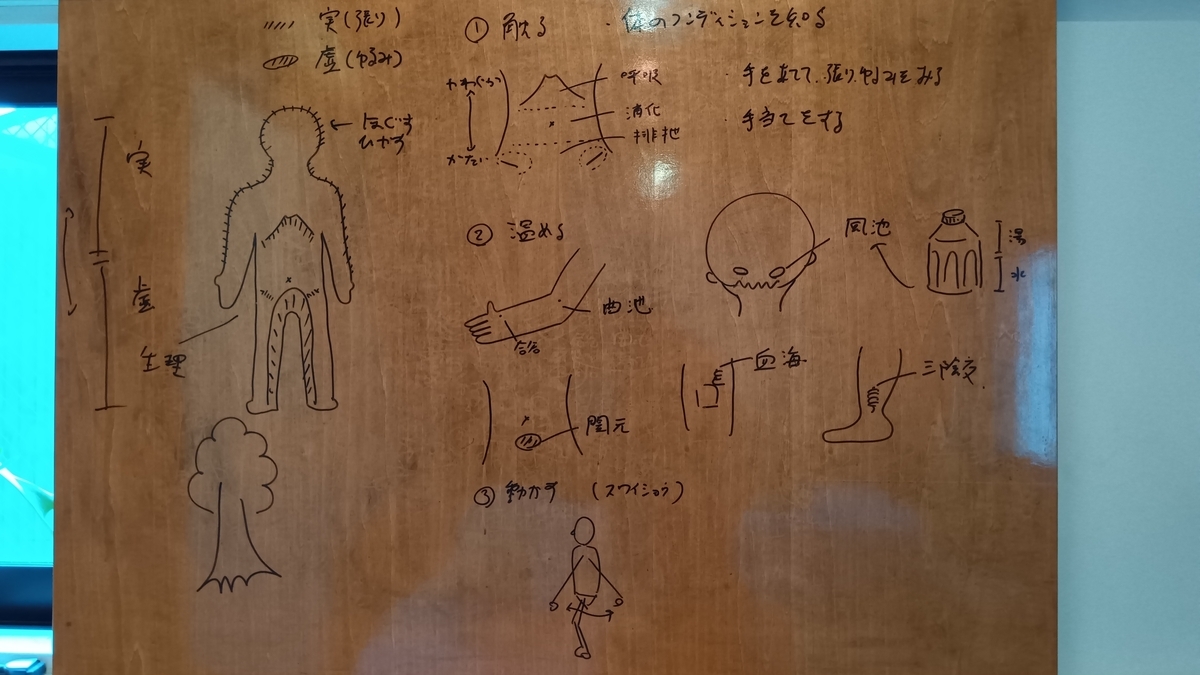 実(張り)
虚(ゆるみ)
① 触る ・体のコンディションを知る
・手を直てて、張り、ゆるみをみる
・手当てをする
やわらかい
かたい
呼吸
消化
排泄
ほぐす
ひやす
実
虚
生理
② 温める
曲池
合谷
風池
湯
水
関元
血海
三陰交
③ 動かす (スワイショウ)